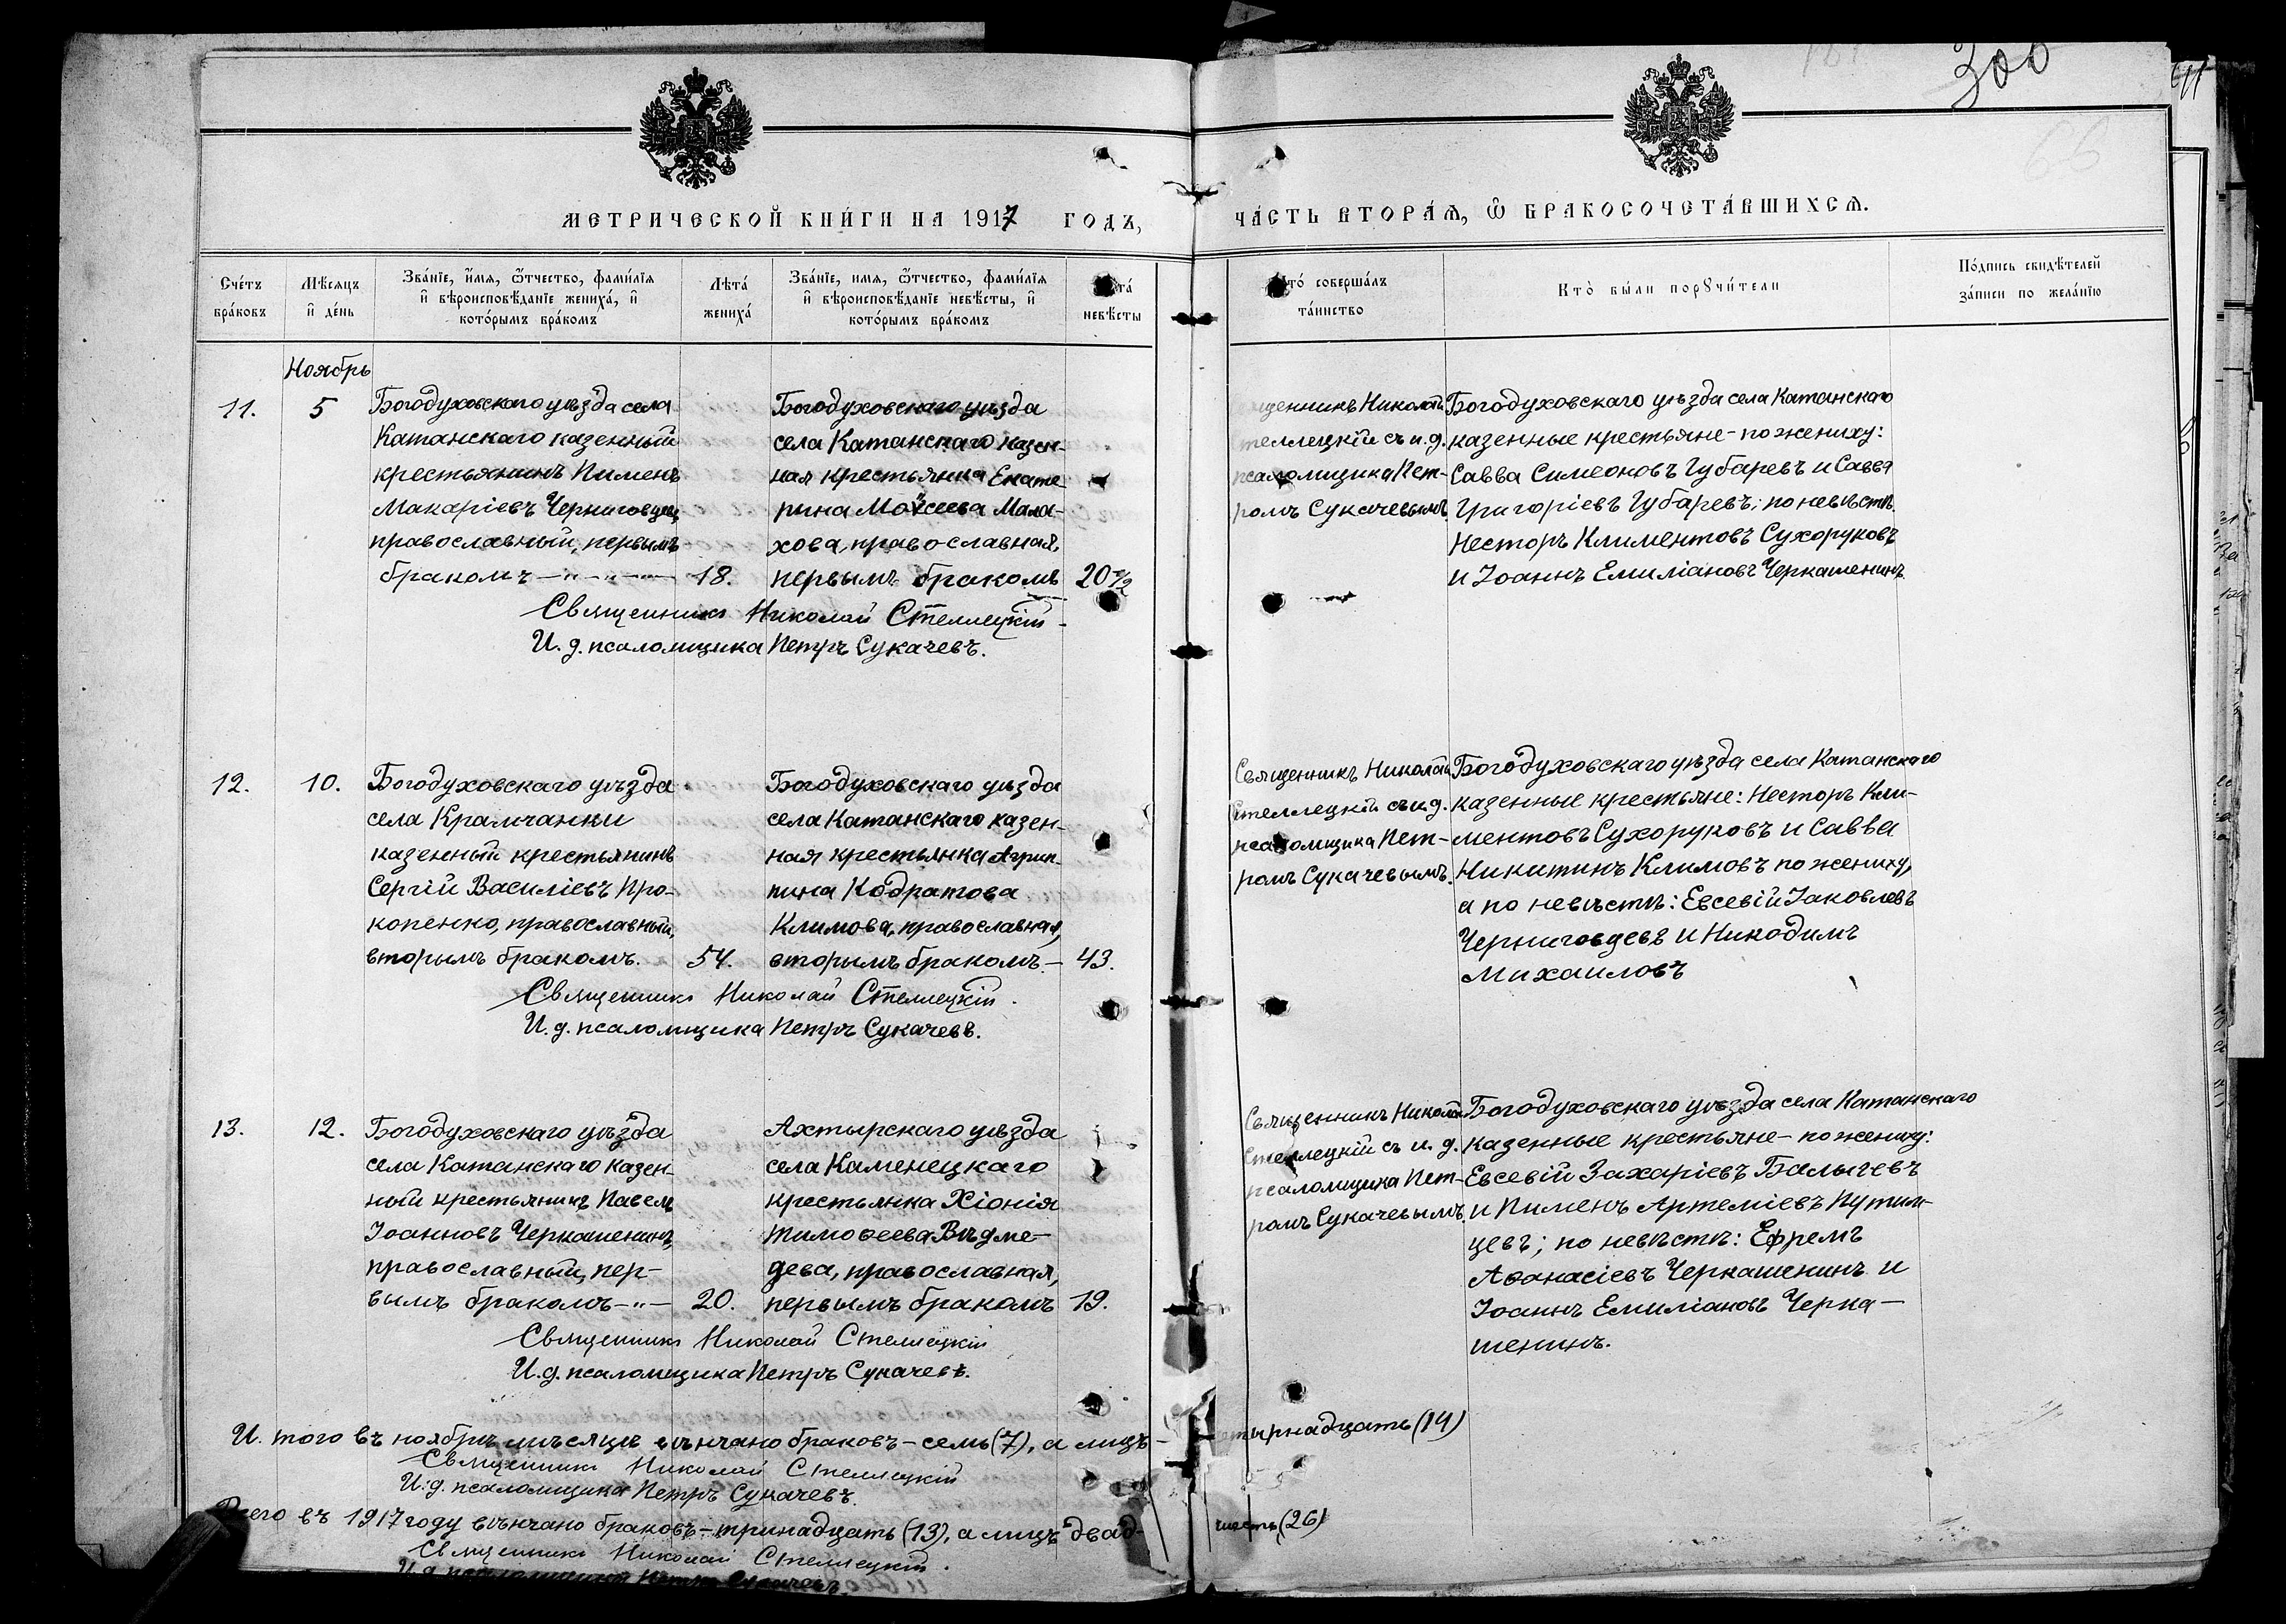 300
66
МЕТРИЧЕСКОЙ КНИ́ГИ НА 1917 ГОДЪ,
ЧА́СТЬ ВТОРА́Ѧ, Ѽ БРАКОСОЧЕТА́ВШИХСѦ.
Сче́тъ бра́ковъ
Мѣ́сяцъ и҆ де́нь
Зва́нїе, и҆́мя, ѻ҆́тчество, фами́лїя и҆ вѣроисповѣ́данїе жениха́, и҆ кото́рымъ бра́комъ
Лѣта́ жениха́
Зва́нїе, имя, ѻ҆́тчество, фами́лїя и҆ вѣроисповѣ́данїе невѣ́сты, и҆ кото́рымъ бра́комъ
невѣ́сты
соверша́лъ та́инство
Кто̀ бы́ли порꙋчи́тели
По́дпись свидѣ́телей за́писи по жела́нїю
Ноябрь
11.
5
Богодуховскаго уѣзда села
Катанскаго казенный
крестьянинъ Пименъ
Макаріевъ Черниговцевъ
православный, первымъ
бракомъ —"—"—
18.
Богодуховскаго уѣзда
села Катанскаго казен-
ная крестьянка Екате
рина Моѵсеева Мала-
хова, православная,
первымъ бракомъ
20 1/2
Священникъ Николай Стеллецкій
И. д. псаломщика Петръ Сукачевъ.
щенникъ Николай
теллецкій съ и. д.
псаломщика Пет-
ромъ Сукачевымъ.
Богодуховскаго уѣзда села Катанскаго
казенные крестьяне - по жениху:
Савва Симеоновъ Губаревъ и Савва
Григоріевъ Губаревъ; по невѣстѣ
Несторъ Климентовъ Сухоруковъ
и Іоаннъ Емиліановъ Черкашенинъ.
12.
10.
Богодуховскаго уѣзда
села Крамчанки
казенный крестьянинъ
Сергій Василіевъ Про-
копенко, православный,
вторымъ бракомъ.
54.
Богодуховскаго уѣзда
села Катанскаго казен-
ная крестьянка Агрип-
пина Кодратова
Климова, православная,
вторымъ бракомъ. —
43.
Священникъ Николай Стеллецкій.
И. д. псаломщика Петръ Сукачевъ.
Священникъ Николай
Стеллецкій съ и д.
псаломщика Пет-
ромъ Сукачевымъ.
Богодуховскаго уѣзда села Катанскаго
казенные крестьяне: Несторъ Кли-
ментовъ Сухоруковъ и Савва
Никитинъ Климовъ по жениху,
а по невѣстѣ: Евсевій Іаковлевъ
Черниговцевъ и Никодимъ
Михаиловъ
13.
12.
Богодуховскаго уѣзда
села Катанскаго казен-
ный крестьянинъ Павелъ
Іоанновъ Черкашенинъ,
православный, пер-
вымъ бракомъ —"—
20.
Ахтырскаго уѣзда
села Каменецкаго
крестьянка Хіонія
Тимоѳеева Вѣдме-
дева, православная,
первымъ бракомъ
19.
Священникъ Николай Стеллецкій
И. д. псаломщика Петръ Сукачевъ.
Священникъ Николай
Стеллецкій съ и. д.
псаломщика Пет-
ромъ Сукачевымъ.
Богодуховскаго уѣзда села Катанскаго
казенные крестьяне - по жениху:
Евсевій Захаріевъ Балычевъ
и Пименъ Артеміевъ Путим-
цевъ; по невѣстѣ: Ефремъ
Аѳанасіевъ Черкашенинъ и
Іоаннъ Емиліановъ Черка-
шенинъ.
И того въ ноябрѣ мѣсяцѣ вѣнчано браковъ - семь (7), а лицъ — етырнадцать (14)
Священникъ Николай Стеллецкій
И. д. псаломщика Петръ Сукачевъ.
Всего въ 1917 году вѣнчано браковъ - тринадцать (13), а лицъ двад- шесть (26)
Священникъ Николай Стеллецкій.
И. д. псаломщика Петръ Сукачевъ.